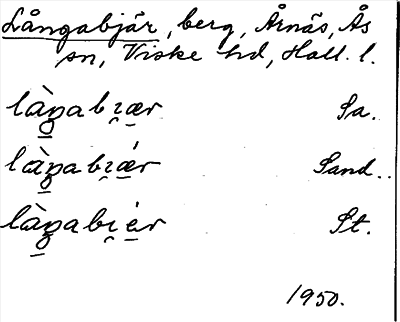 Långabjär, berg, Årnäs, Ås
sn, Viske hd, Hall. l.
làŋ̠abı̯ær Sa.
là̠ŋabı̯ǽ̠r Sand..
làŋ̠abı̯é̠r St.
1950.